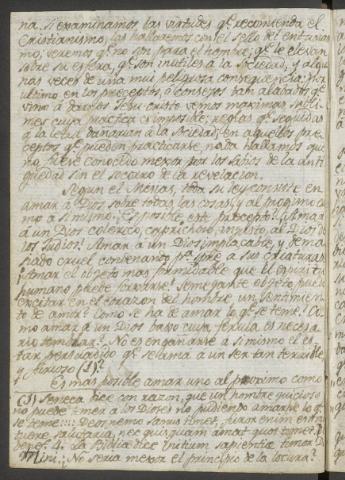 na. Si examinamos las virtudes qe. recomienda el
Cristianismo, las hallaremos con el sello del entusias-
mo, veremos qe. no son para el hombre, qe. le elevan
sobre su esfera, qe. son inutiles a la Sociedad, y algu-
nas veces de una mui peligrosa consequencia. Por
ultimo en los preceptos, o consejos tan alabados qe.
vino a darnos Jesu-cristo vemos maximas subli-
mes cuya practica es imposible; reglas qe. seguidas
a la letra dañarian a la Sociedad; en aquellos pre-
ceptos qe. pueden practicarse, nada hallamos que
no fuese conocido mejor por los sabios de la anti-
guedad sin el socorro de la revelacion.
Segun el Mesias, toda su ley consiste en
amar a Dios sobre todas las cosas, y al proximo co-
mo a si mismo. ¿Es posible este precepto? ¿Amar
a un Dios colerico, caprichoso, injusto, al Dios de
los Judios! ¿Amar a un Dios implacable, y dema-
siado cruel condenando pa. spre. a sus criaturas!
¡Amar el objeto mas formidable que el espiritu
humano puede forxarse! Semejante objeto puede
excitar en el corazon del hombre un sentimien-
to de amor? Como se ha de amar lo qe. se teme? Co-
mo amar a un Dios baxo cuya ferula es necesa-
rio temblar? No es engañarse a si mismo el es-
tar persuadido qe. se ama a un ser tan terrible
y furioso (1)?
Es mas posible amar uno al proximo como
(1) Seneca dice con razon, que un hombre juicioso
no puede temer a los Dioses no pudiendo amarse lo qe.
se teme: Deos nemo sanus timet, furor enim est me-
tuere salutaria, nec quisquam amat quos timet. De
benef. 4. La Biblia dice Initium sapientiae timor Do-
mini. ¿No seria mejor el principio de la locura?